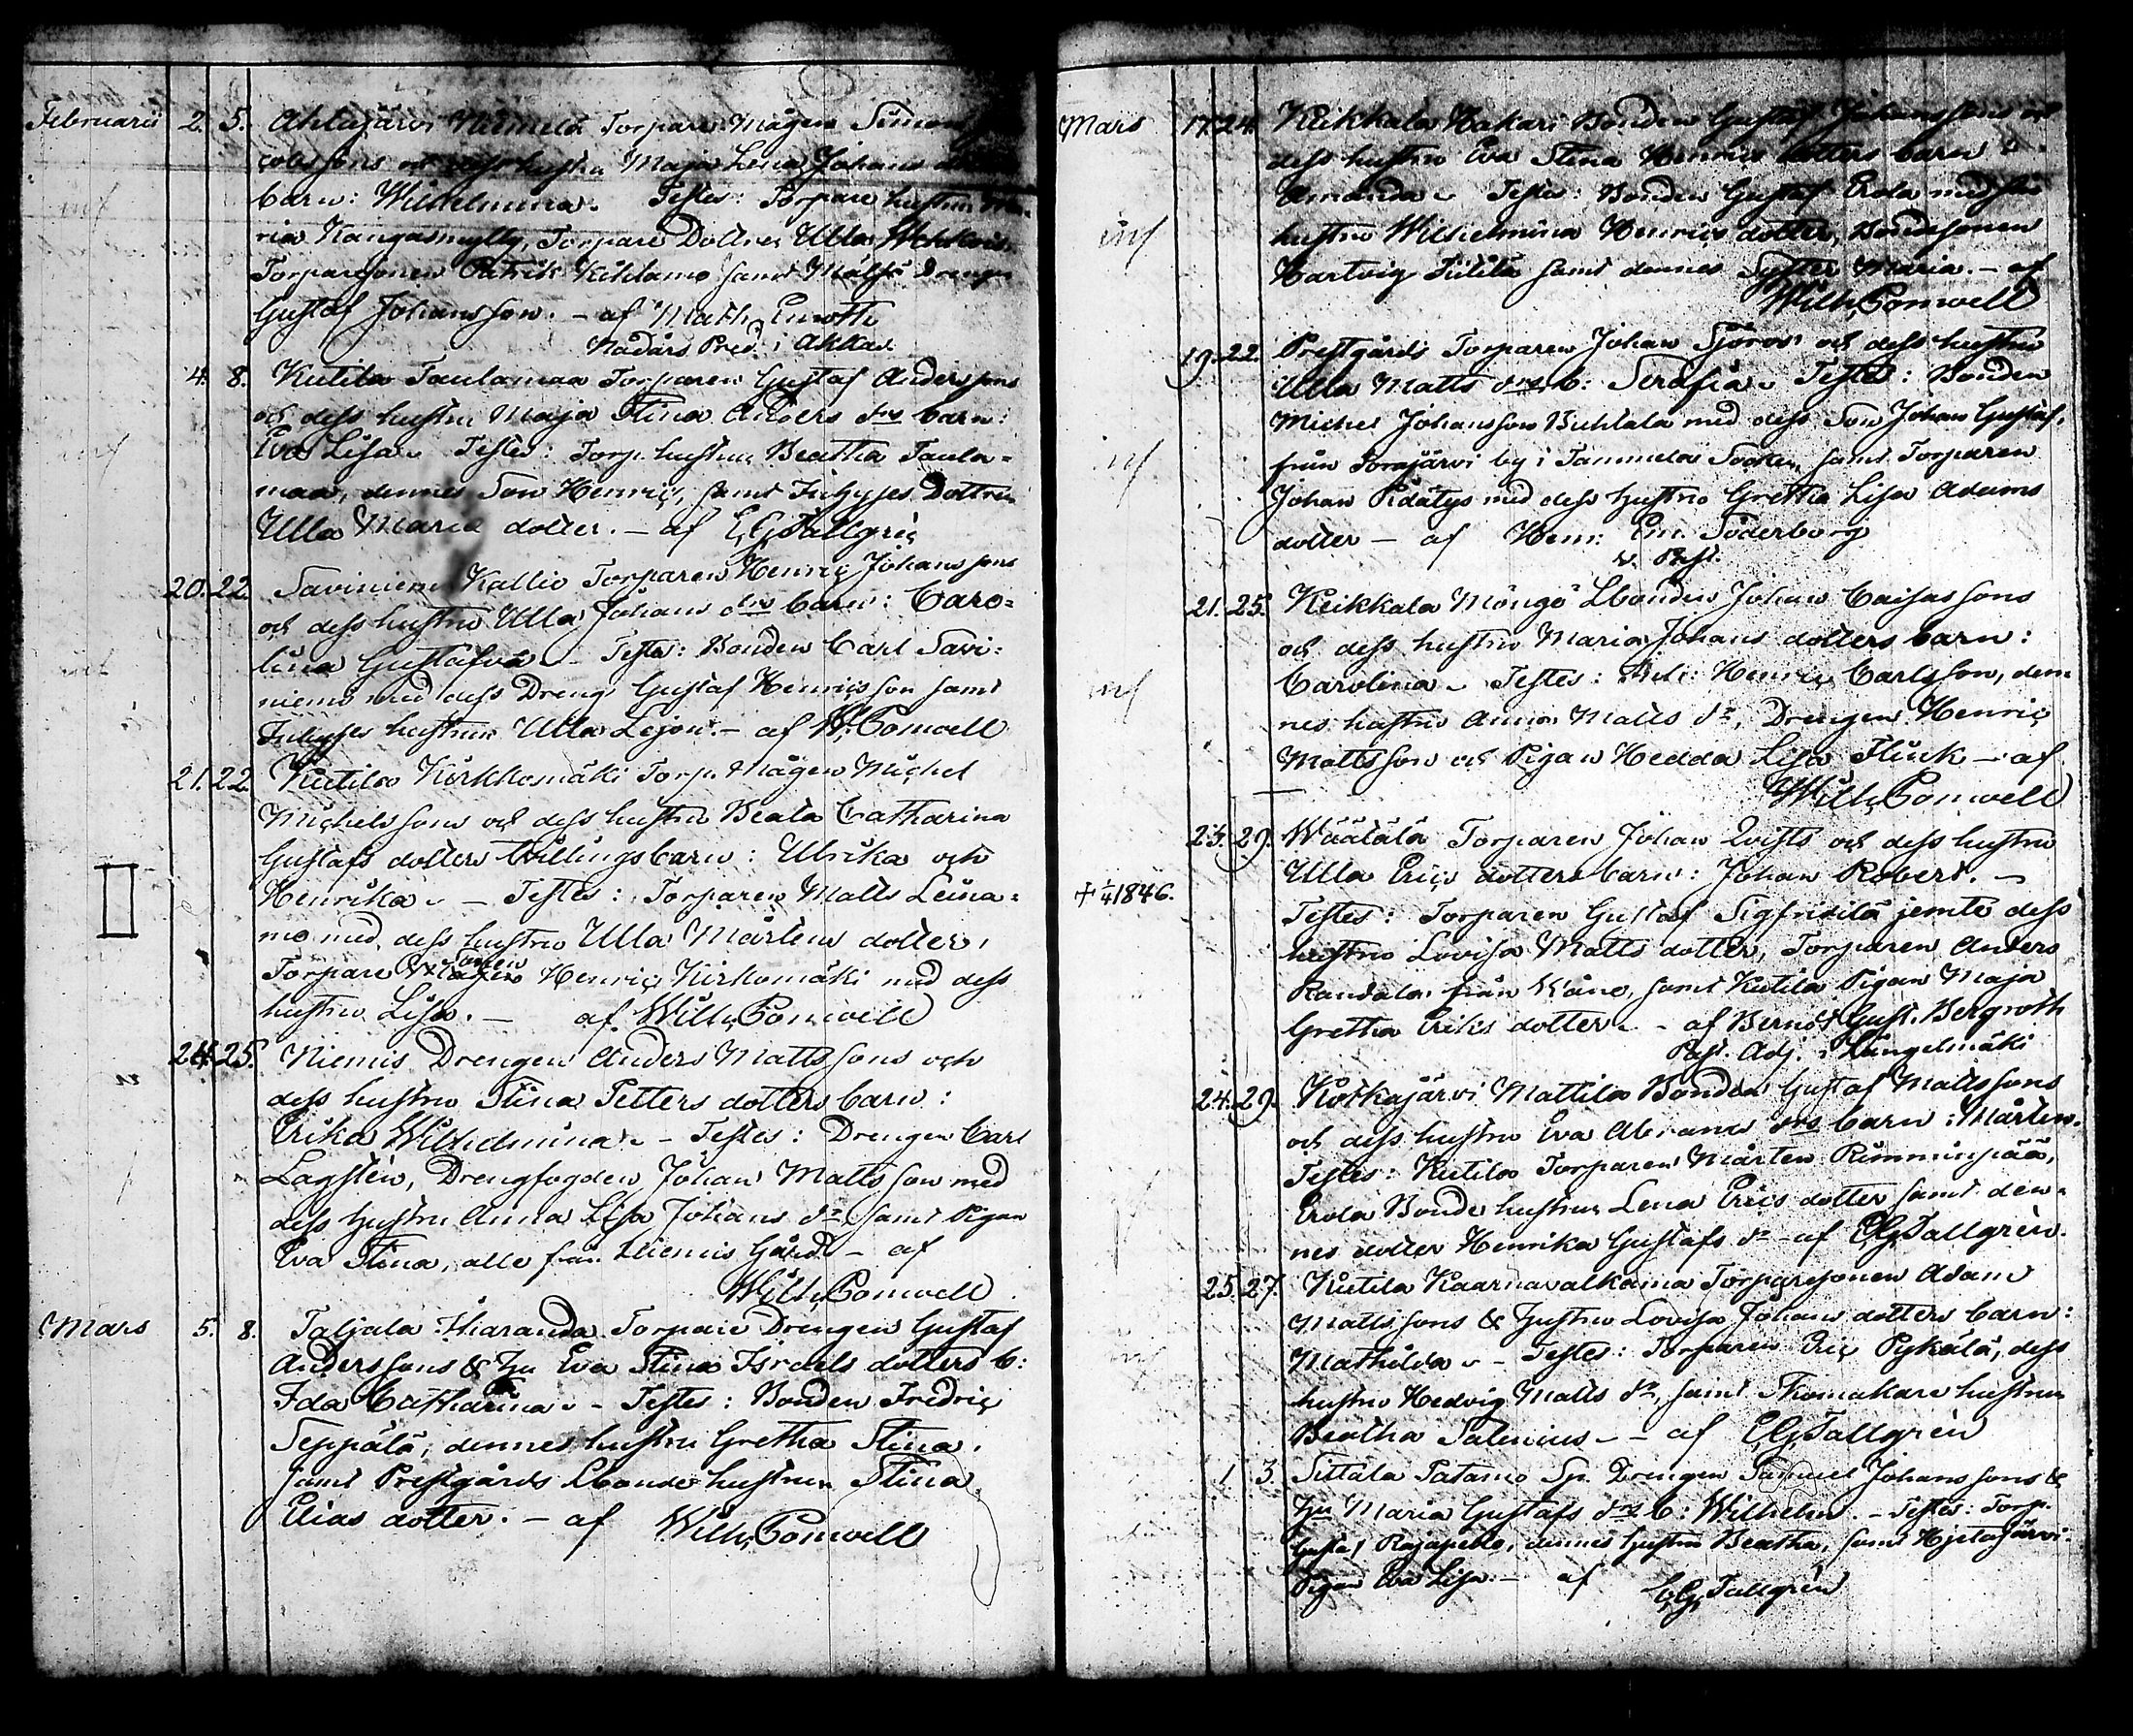 Februarii 2. 5. Ahlajärvi Niemelä Torpare Mågen Simon
cobssons och dess hustru Maja Lena Johans
barn: Wilhelmina. Testes: Torpare hustrun Ma-
ria Kangasmylly, Torpare Dottren Ulla
Torparesonen Patrik Kihlamo samt Drengen
Gustaf Johansson. – af Math. Enroth
Nådårs Pred. i Akkas.
4. 8. Kutila Taulamaa Torparen Gustaf Anderssons
och dess hustru Maja Stina Anders drs barn:
Eva Lisa. Testes: Torp. hustrun Beatha Taula-
maa, dennes Son Henric, samt Inhyses Dottren
Ulla Maria dotter. – af E. G. Tallgrén
20. 22. Saviniemi Kallio Torparen Henric Johanssons
och dess hustru Ulla Johans drs barn: Caro-
lina Gustafva. – Testes: Bonden Carl Savi-
niemi med dess Dreng Gustaf Henricsson samt
Inhyses hustrun Ulla Lejon. – af W. Ponwell
21. 22. Kutila Kirkkomäki Torp. Mågen Michel
Michelssons och dess hustru Beata Catharina
Gustafs dotters tvillingsbarn: Ulrika och
Henrika. – Testes: Torparen Matts Leina-
mo med dess hustru Ulla Mårtens dotter,
Torpare Sonen Henric Kirkomäki med dess
hustru Lisa. – af Wilh. Ponwell
24. 25. Niemis Drengen Anders Mattssons och
dess hustru Stina Petters dotters barn:
Erika Wilhelmina. – Testes: Drengen Carl
Lagsten, Drengfogden Johan Mattsson med
dess hustru Anna Lisa Johans dr samt Pigan
Eva Stina, alle från Niemis Gård – af
Wilh. Ponwell
Mars 5. 8. Taljala Hiaranda Torpare Drengen Gustaf
Anderssons & Hu Eva Stina Israels dotters b:
Ida Catharina. – Testes: Bonden Fredric
Seppälä, dennes hustru Gretha Stina,
samt Prestgårds Lbonde hustrun Stina
Elias dotter. – af Wilh. Ponwell
Mars 17. 24. Keikkala Hakari Bonden Gustaf Johanssons och
dess hustru Eva Stina Henrics dotters barn
Amanda. Testes: Bonden Gustaf Erola med sin
hustru Wilhelmina Henrics dotter, Bondesonen
Hartvig Tiitilä samt dennes Syster Maria. – af
Wilh. Ponwell
19. 22. Prestgårds Torparen Johan Sjöroos och dess hustru
Ulla Matts drs b: Serafia. Testes: Bonden
Michel Johansson Buhlala med dess Son Johan Gustaf,
från Torajärvi by i Tammela Socken, samt Torparen
Johan Pidätys med dess hustru Gretha Lisa Adams
dotter – af Henr. Em. Söderborg
v. Past.
21. 25. Keikkala Möngö Lbonden Johan Caisassons
och dess hustru Maria Johans dotters barn:
Carolina. Testes: Henric Carlsson, den-
nes hustru Anna Matts dr, Drengen Henric
Mattsson och Pigan Hedda Lisa Flink – af
Wilh. Ponwell
23. 29. Wäälälä Torparen Johan Qvists och dess hustru
† 1/4 1846. Ulla Erics dotters barn: Johan Robert. –
Testes: Torparen Gustaf Sigfridilä jemte dess
hustru Lovisa Matts dotter, Torparen Anders
Randala från Wåno, samt Kutila Pigan Maja
Gretha Eriks dotter. – af Berndt Gust. Bergroth
Past. Adj. i Längelmäki
24. 29. Kotkajärvi Mattila Bonden Gustaf Mattssons
och dess hustru Eva Abrams drs barn: Mårten.
Testes: Kutila Torparen Mårten Rimminpää,
Erola Bonde hustrun Lena Erics dotter samt den-
nes dotter Henrika Gustafs dr – af E. G. Tallgrén.
25. 27. Kutila Kaarnavalkama Torparesonen Adam
Mattssons & hustru Lovisa Johans dotters barn:
Mathilda. – Testes: Torparen Eric Pykälä, dess
hustru Hedvig Matts dr, samt Skomakare hustrun
Beatha Salenius – af E. G. Tallgrén
1. 3. Sittala Tatamo Sp. Drengen Samuel Johanssons &
Hu Maria Gustafs drs b: Wilhelm. – Testes: Torp.
Gustaf Rajapelto, dennes hustru Beatha, samt Hjetajärvi
Pigan Eva Lisa. – af E. G. Tallgrén